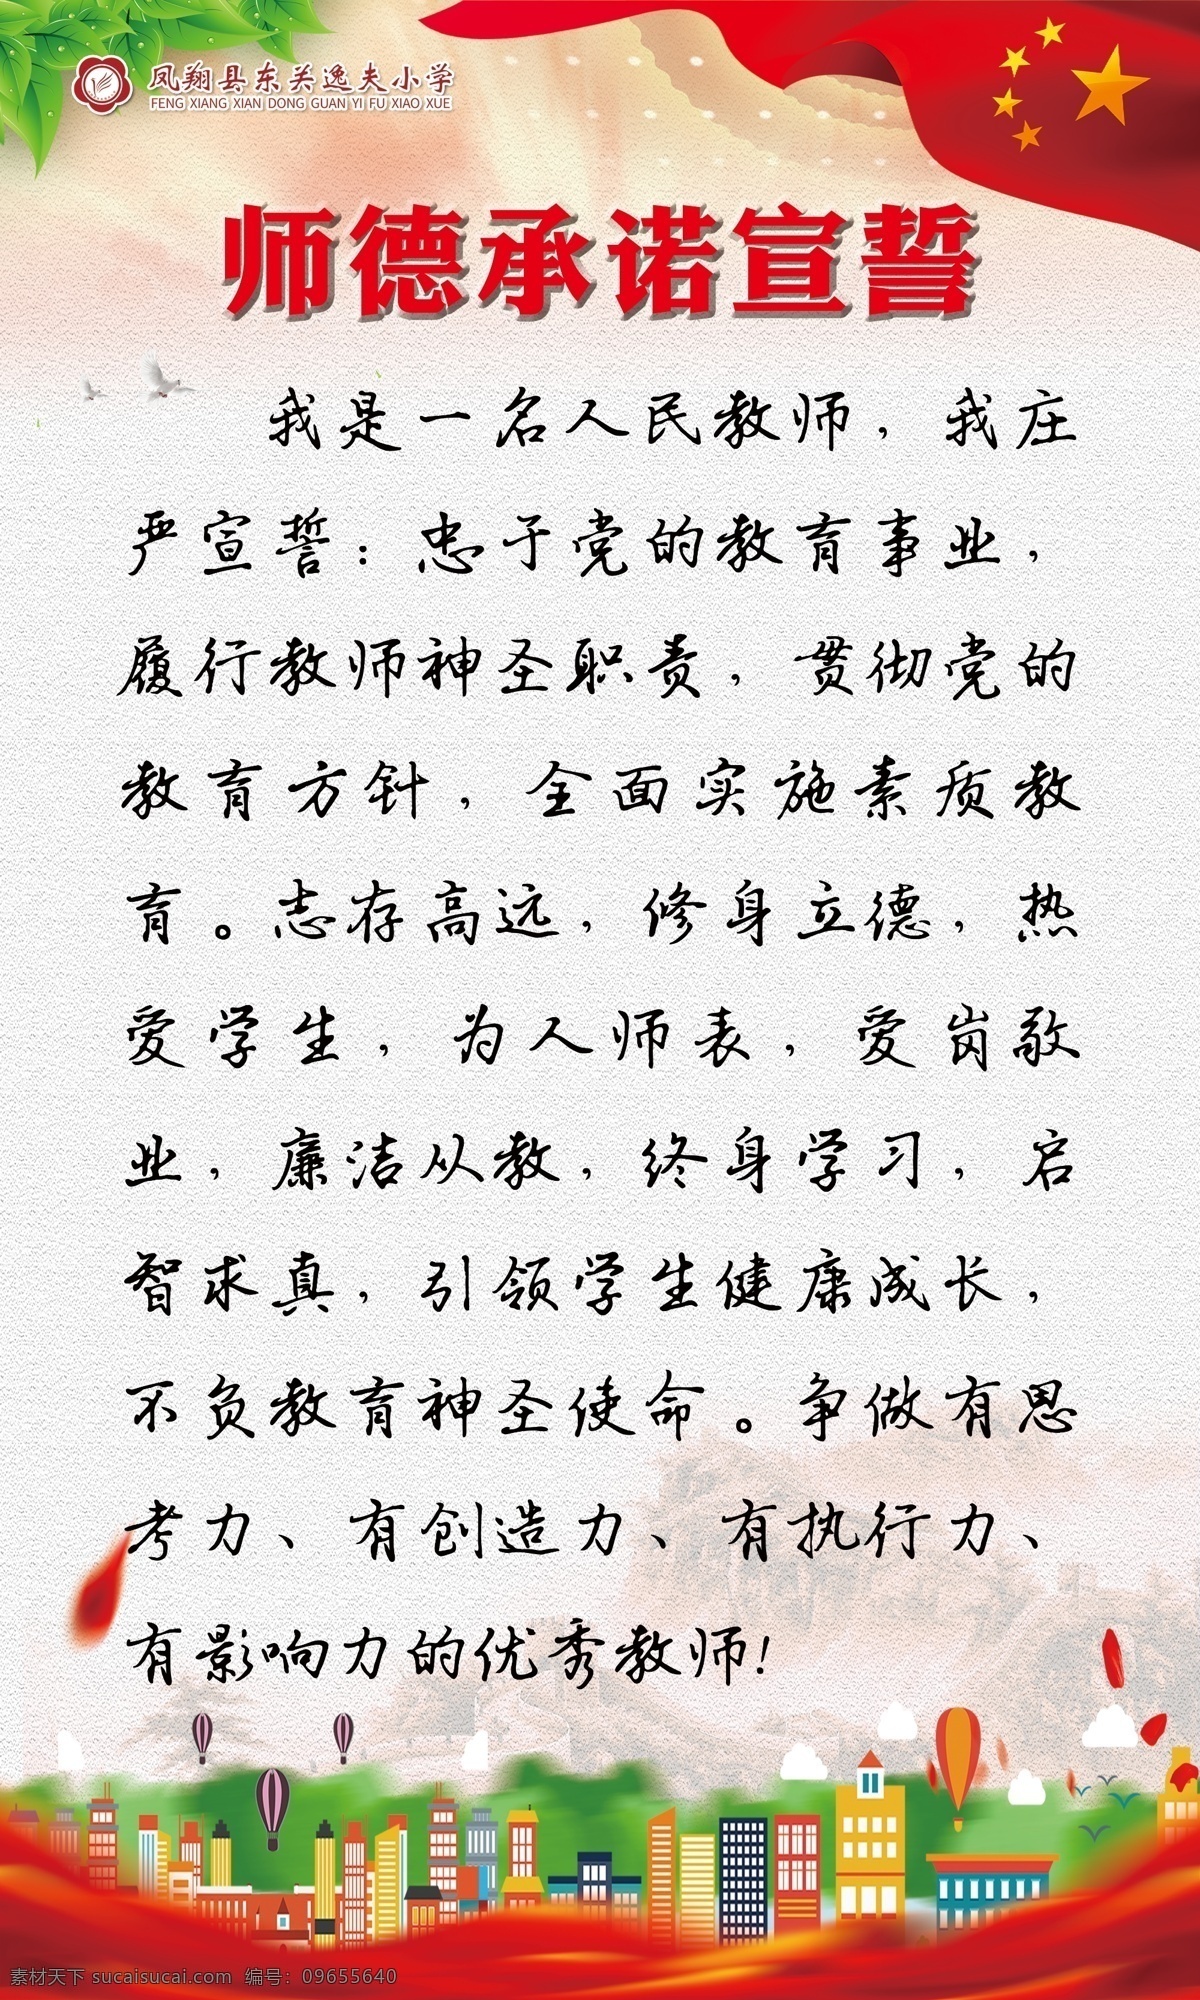 凤翔县东关逸夫小学
FENG XIANG XIAN DONG GUAN YI FU XIAO XUE
师德承诺宣誓
我是一名人民教师，我庄
严宣誓：忠于党的教育事业，
履行教师神圣职责，贯彻党的
教育方针，全面实施素质教
育。志存高远，修身立德，热
爱学生，为人师表，爱岗敬
业，廉洁从教，终身学习，启
智求真，引领学生健康成长，
不负教育神圣使命。争做有思
考力、有创造力、有执行力、
有影响力的优秀教师！
素材天下 sucaisucai.com 编号：09655640